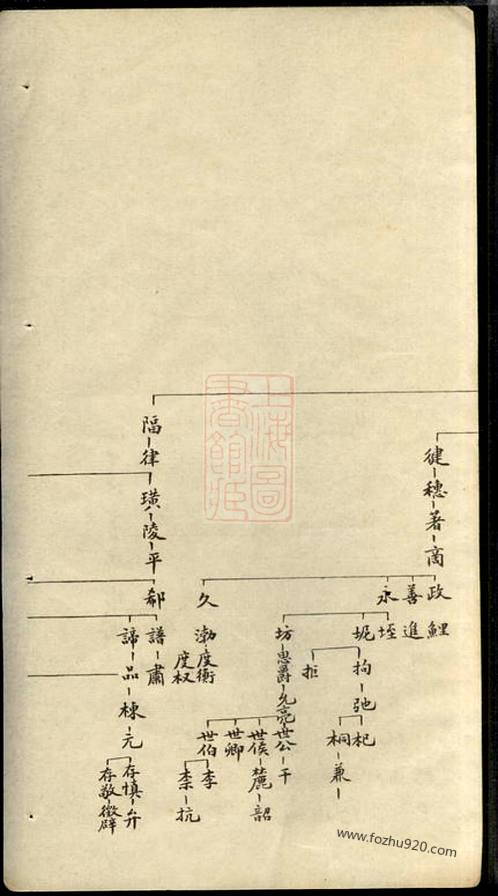 健
穗
著
商
政
善
永
久
鯉
進
垤
坭
坊
拘
拒
弛
杞
桐
兼
思爵
允亮
世公
世侯
世卿
世伯
干
麓
韶
李
柰
抗
渤
度衡
度权
隔
律
璜
陵
平
郗
譜
諦
肅
品
棟
元
存慎
存敬
弁
徵辟
上海圖書館藏
www.fozhu920.com